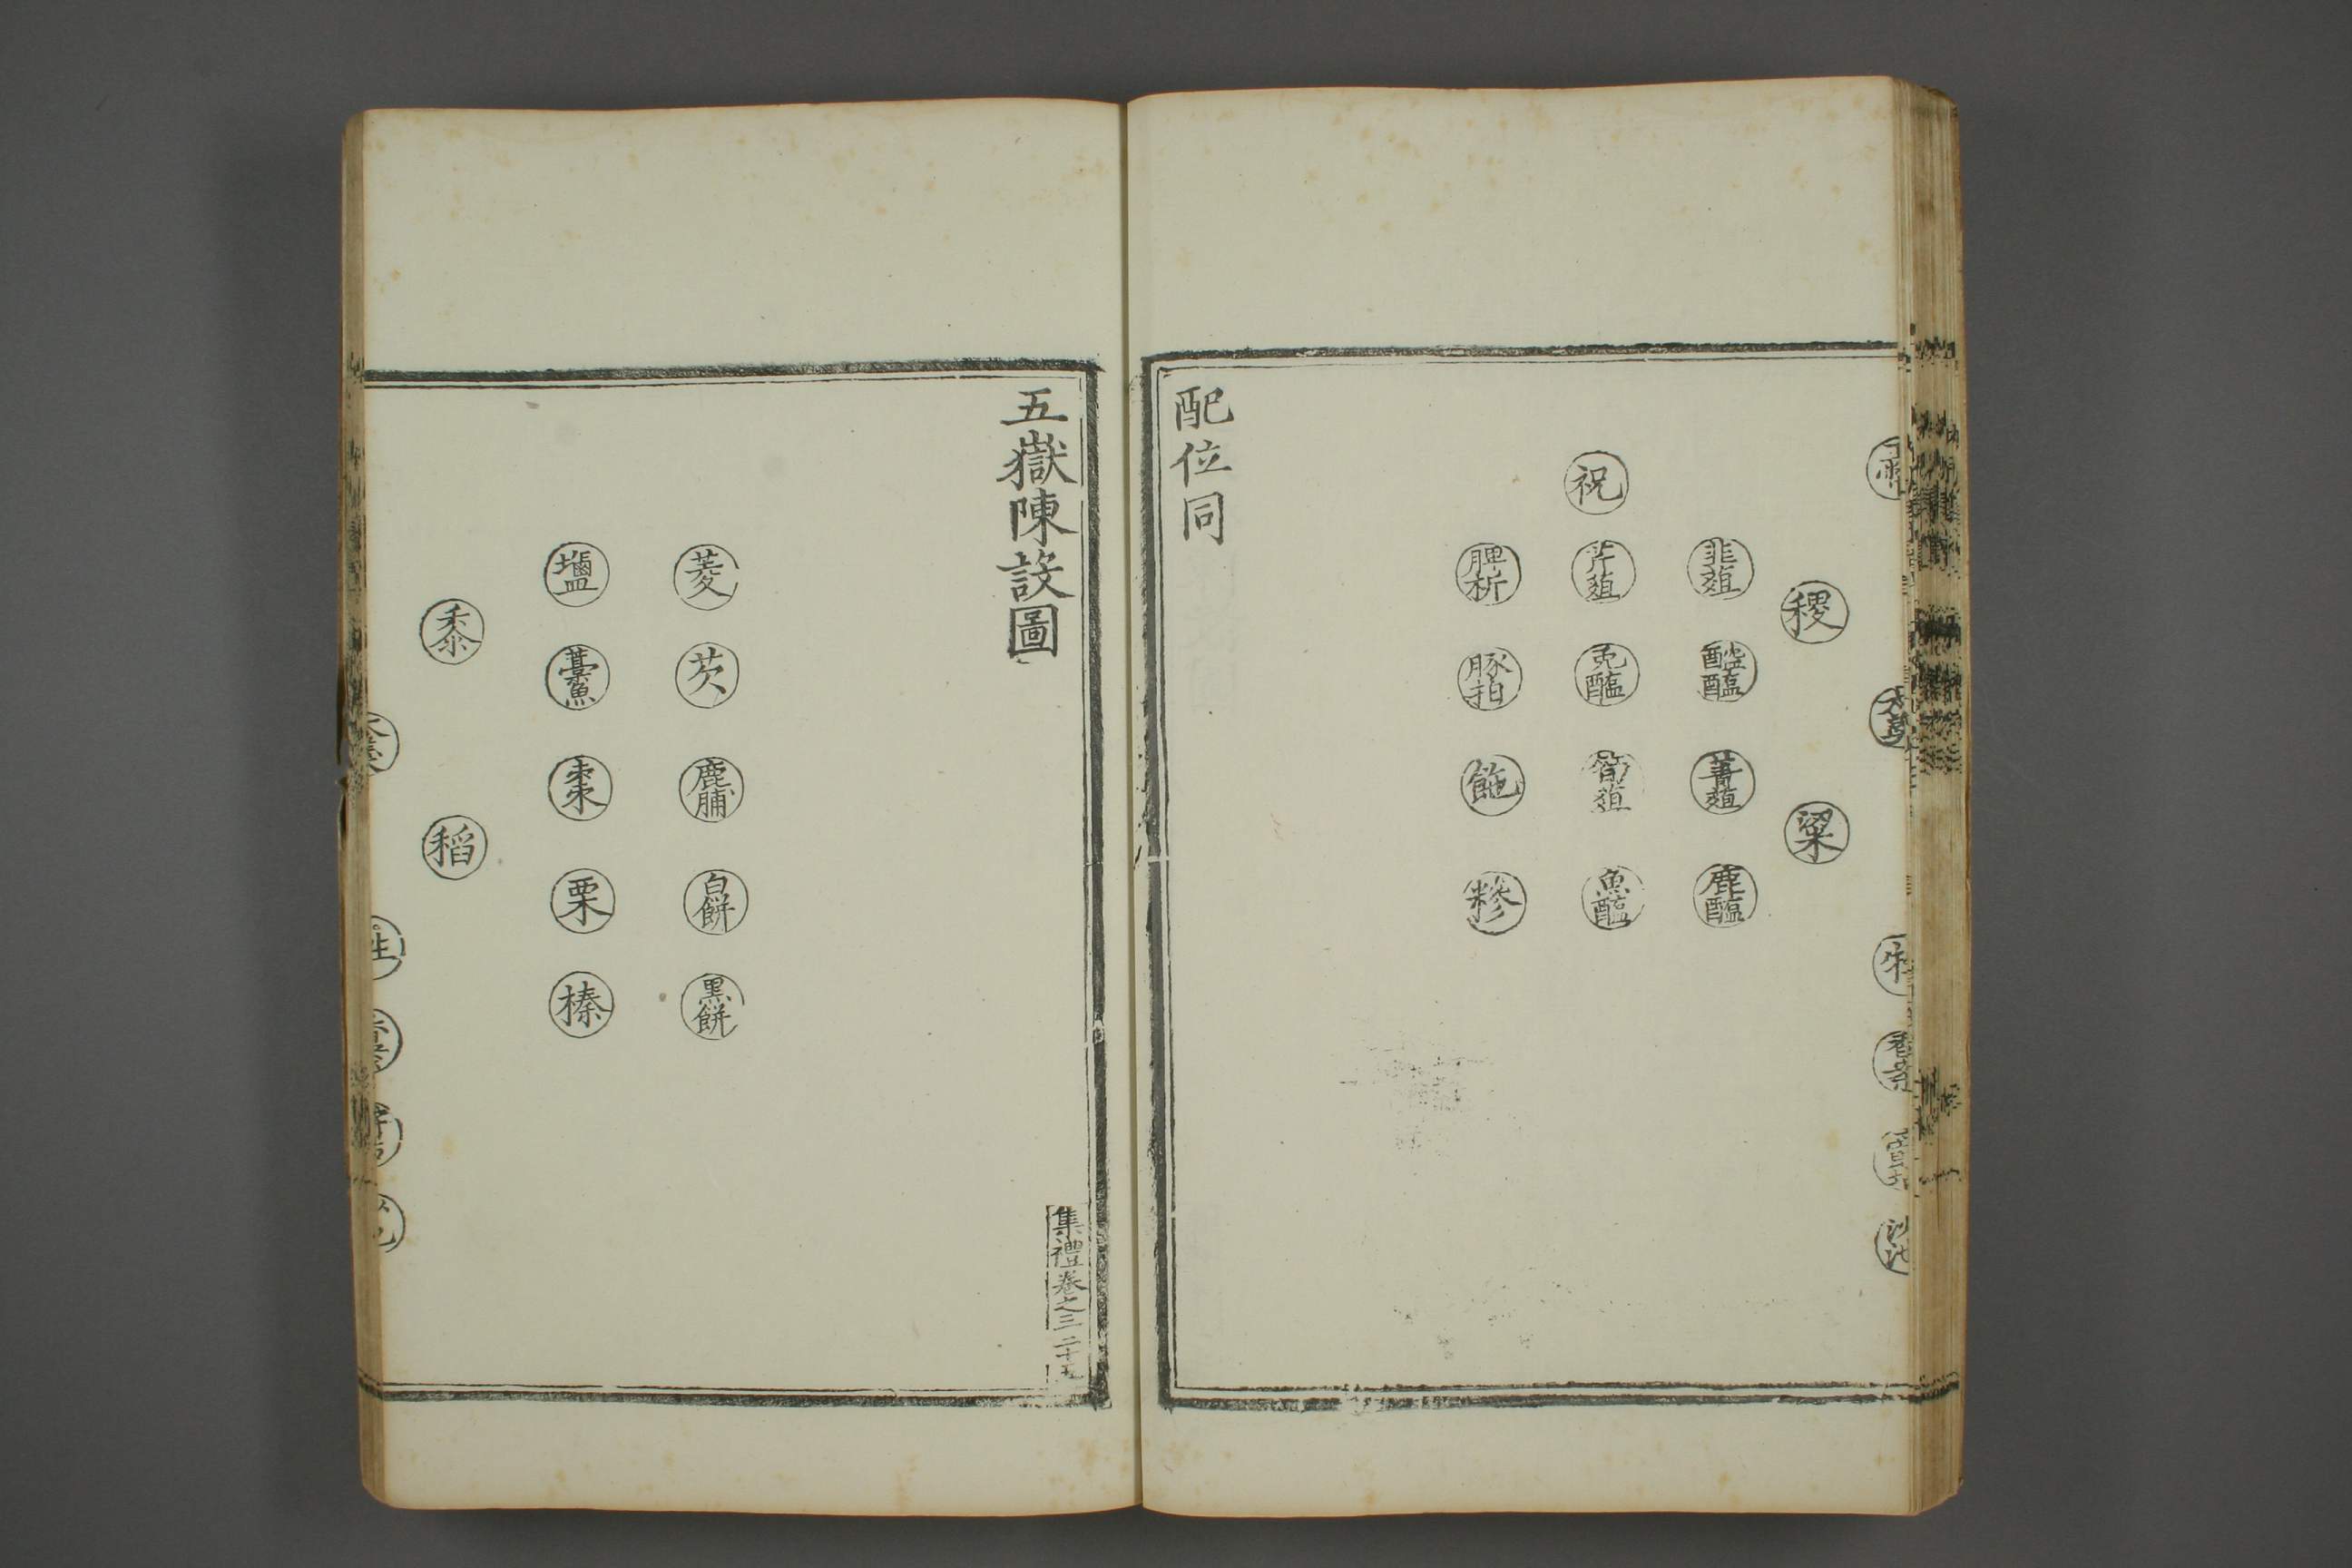 稷
粱
韭菹
醓醢
菁菹
鹿醢
祝
芹菹
兎醢
筍菹
魚醢
脾析
豚拍
飽
糝
配位同
五嶽陳設圖
菱
芡
鹿脯
白餅
黑餅
鹽
藁魚
棗
栗
榛
黍
稻
集禮卷之三